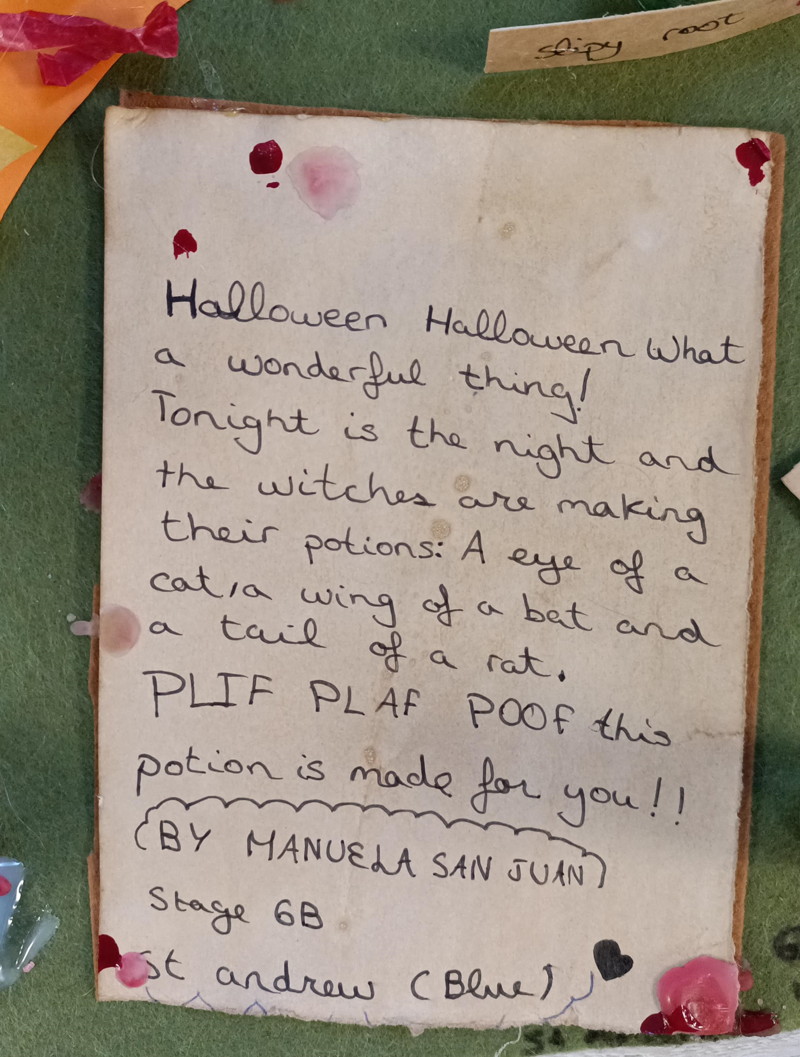 slipy root
Halloween Halloween What
a wonderful thing!
Tonight is the night and
the witches are making
their potions: A eye of a
cat, a wing of a bat and
a tail of a rat.
PLIF PLAF POOF this
potion is made for you!!
(BY MANUELA SAN JUAN)
Stage 6B
St andrew (Blue)